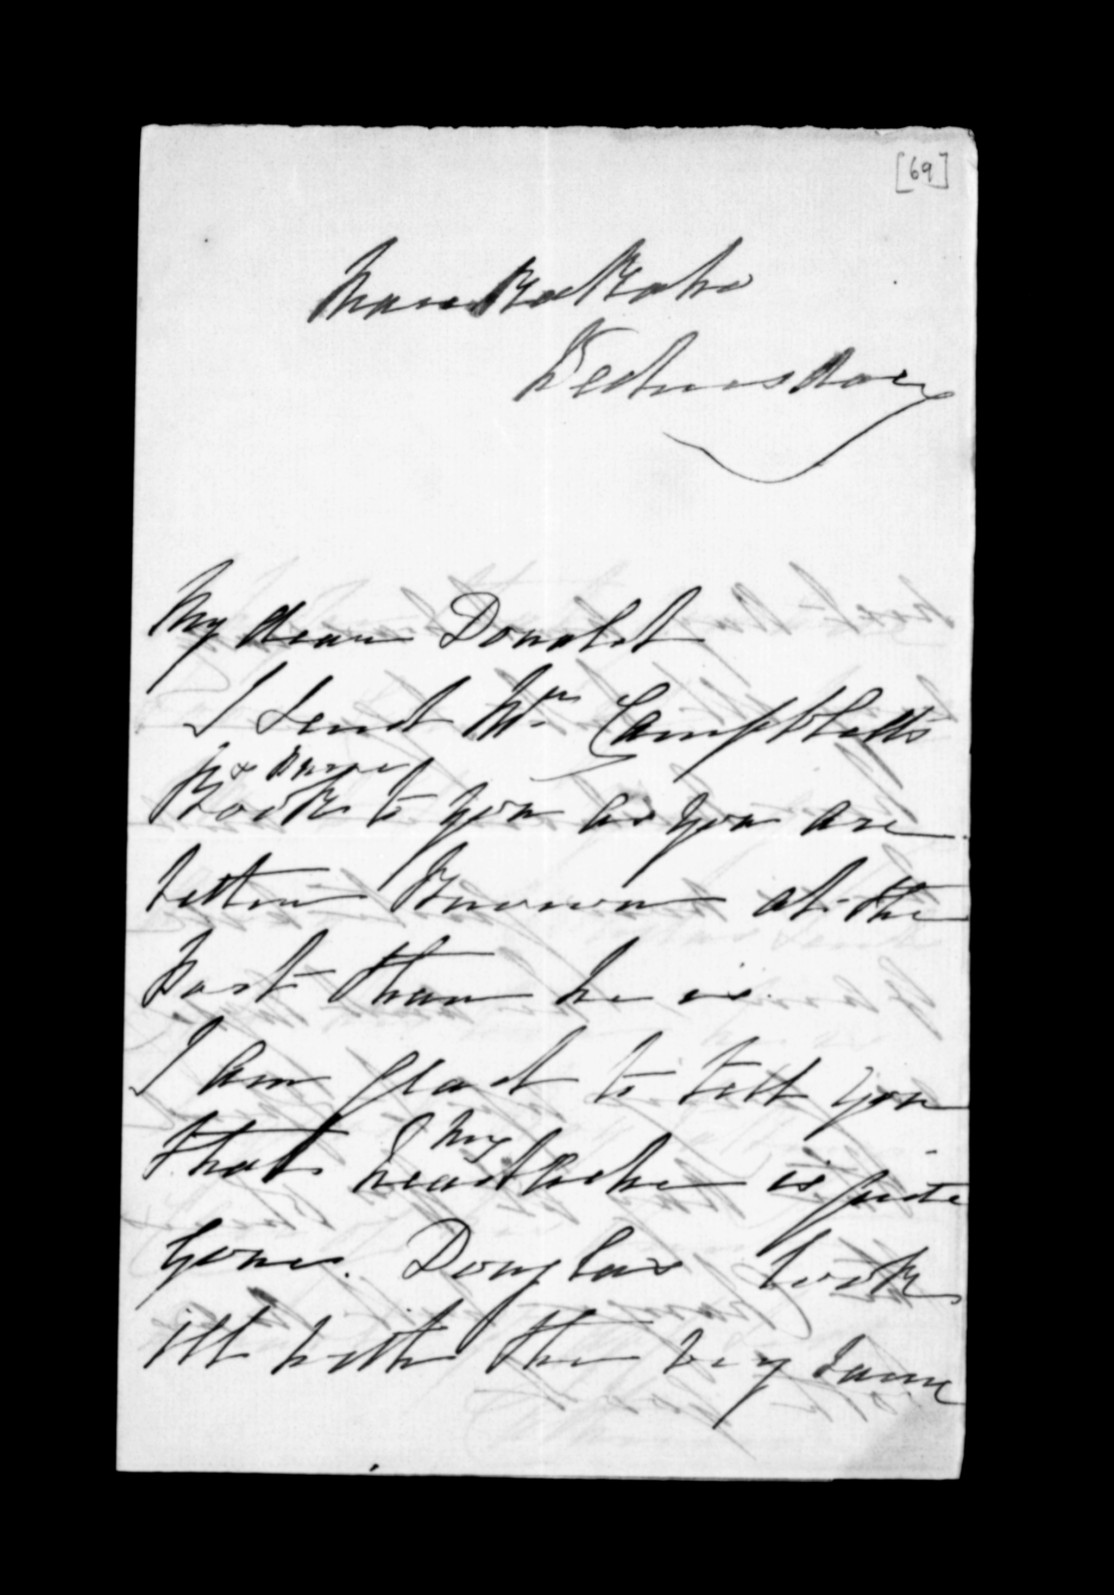 [69]
Maraekakaho
Wednesday
My dear Donald
I send Mr Campbell's
Book to you as you are
better known at the
Post than he is.
I am glad to tell you
my
that headache is quite
gone. Douglas took
ill with the very same